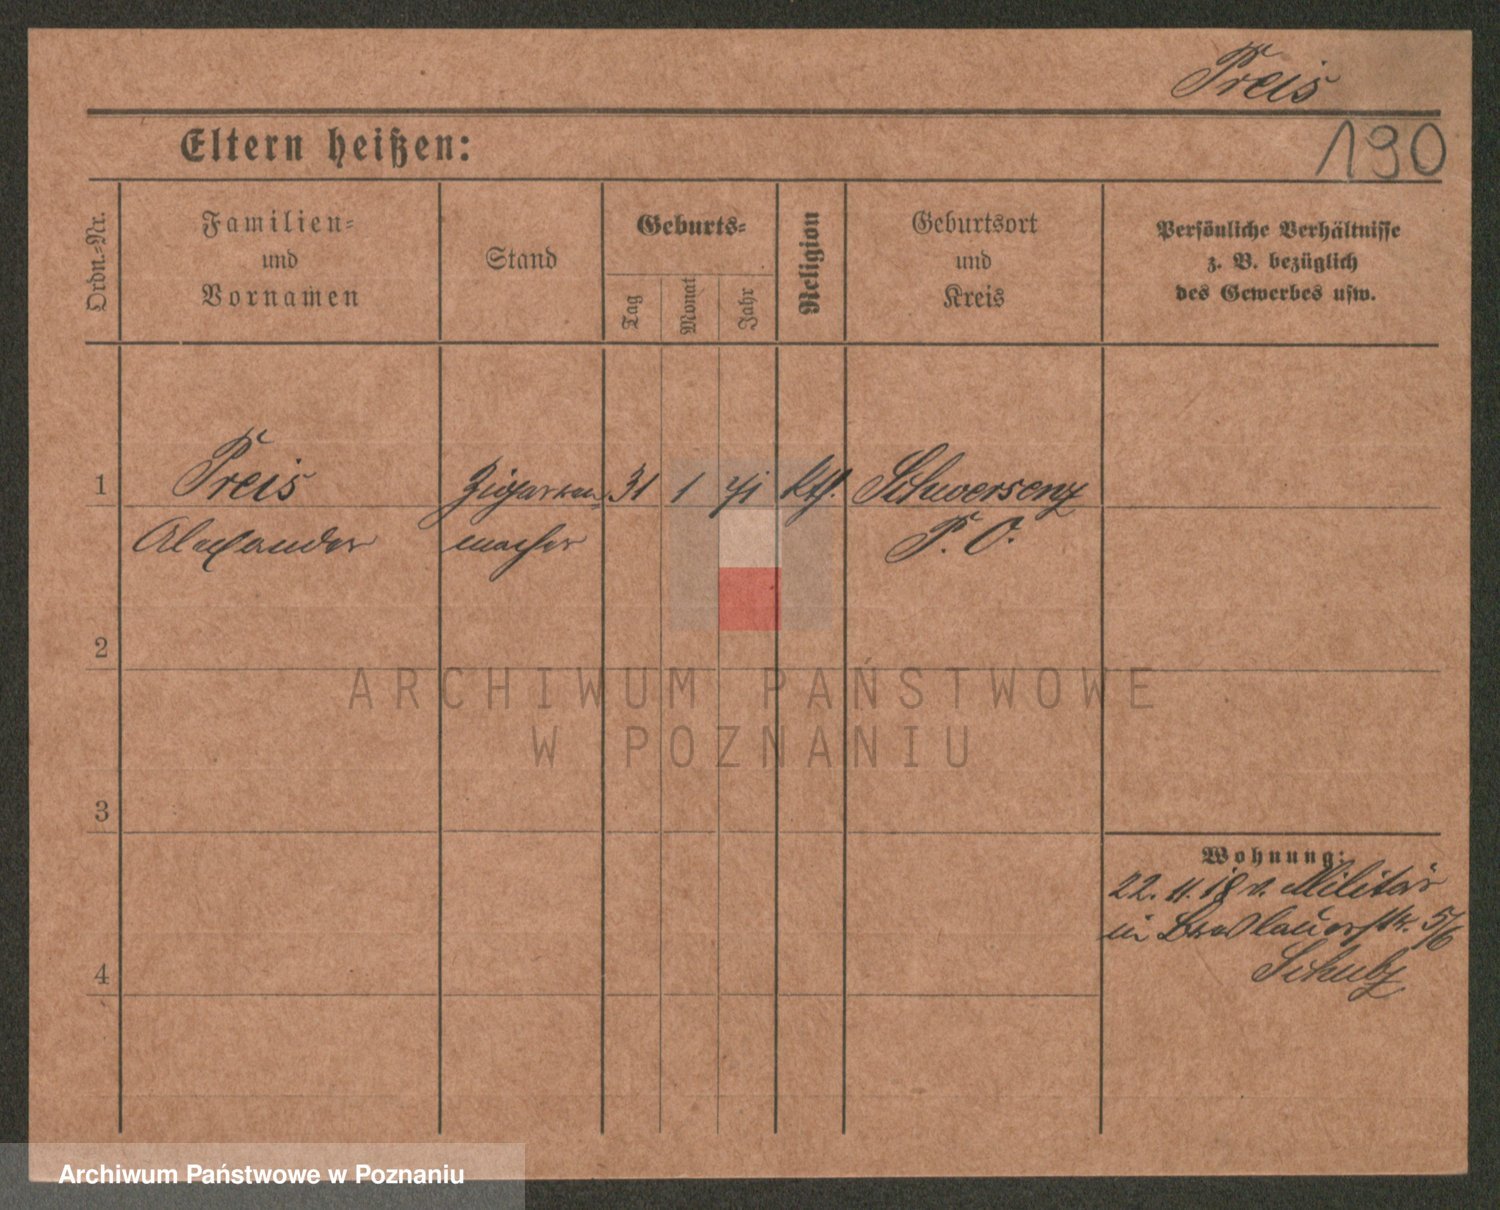 Preis
190
Eltern heißen:
Ordn.-Nr.
Familien-
und
Vornamen
Stand
Geburts-
Tag
Monat
Jahr
Religion
Geburtsort
und
Kreis
Persönliche Verhältnisse
z. B. bezüglich
des Gewerbes usw.
1 Preis Zigarren- 31 1 71 kth. Schwersenz
Alexander macher P. O.
2
ARCHIWUM PAŃSTWOWE
W POZNANIU
3
Wohnung:
22. 11. 18 v. Militär
in Breslauerstr. 5/6
Schulz
4
Archiwum Państwowe w Poznaniu